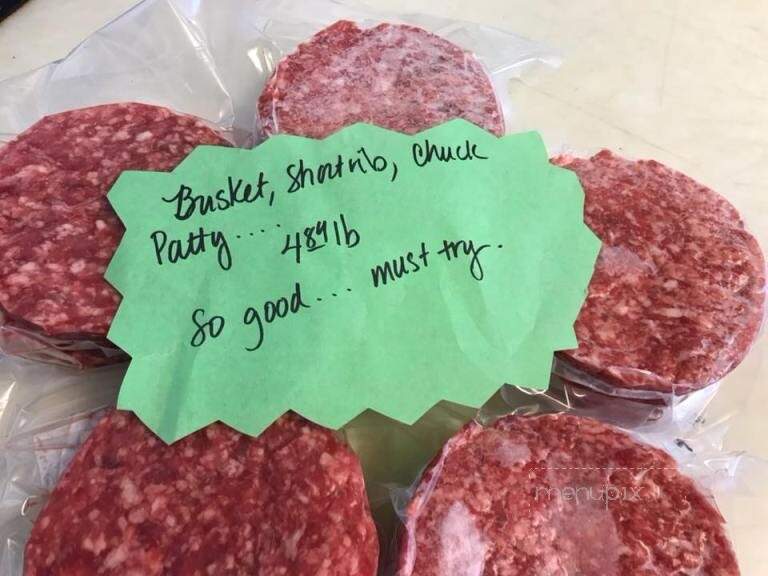 Brisket, Shortrib, Chuck
Patty.... 4 89 lb
So good... must try.
menupix